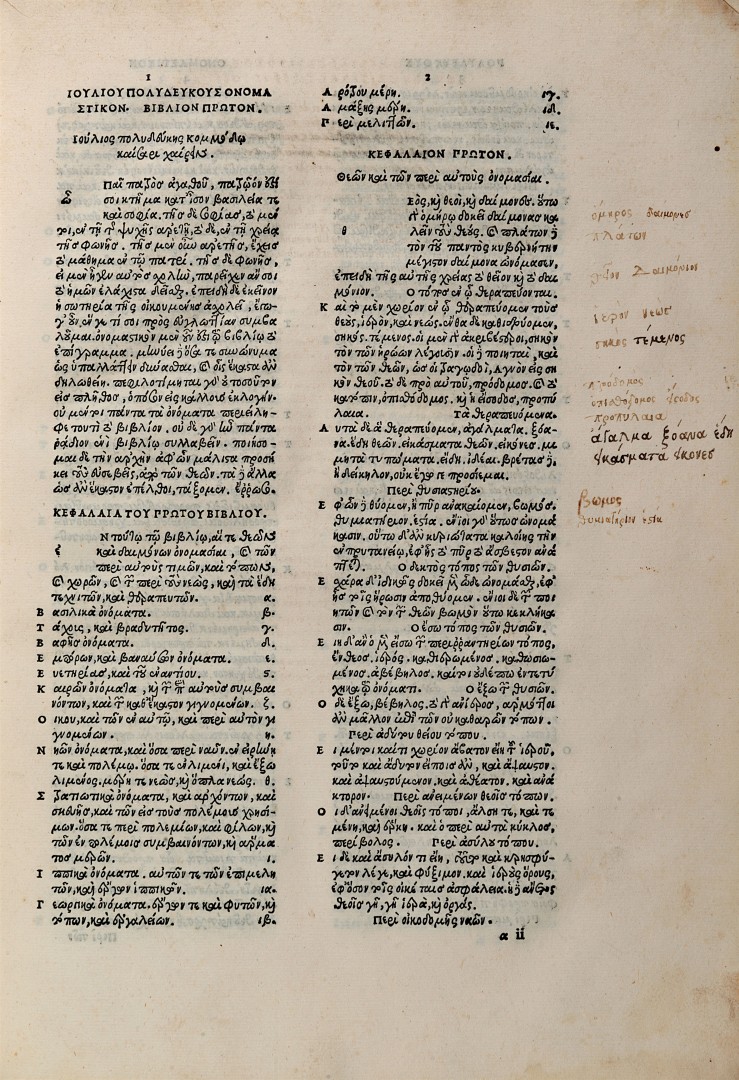 1
ΙΟΥΛΙΟΥ ΠΟΛΥΔΕΥΚΟΥΣ ΟΝΟΜΑ
ΣΤΙΚΟΝ. ΒΙΒΛΙΟΝ ΠΡΩΤΟΝ.
Ιούλιος πολυδεύκης κομμόδῳ
καίσαρι χαίρειν.
Παῖ πατρὸς ἀγαθοῦ, πατρῷόν ἐστί
ὦ σοι κτῆμα κατ' ἴσον βασιλεία τε
καὶ σοφία. τῆς δὲ σοφίας, τὸ μέν
τι, ἐν τῇ τῆς ψυχῆς ἀρετῇ, τὸ δὲ, ἐν τῇ χρείᾳ
τῆς φωνῆς. τῆς μὲν οὖν ἀρετῆς, ἔχεις
τὸ μάθημα ἐν τῷ πατρί. τῆς δὲ φωνῆς,
εἰ μὲν ἦγεν αὐτὸς σχολὴν, παρεῖχεν ἄν σοι
τὸ ἡμῶν ἐλάχιστα δεῖσθαι. ἐπειδὴ δὲ ἐκεῖνον
ἡ σωτηρία τῆς οἰκουμένης ἀσχολεῖ, ἔγω
γ' οὖν, ἕν γέ τί σοι πρὸς εὐγλωττίαν συμβα
λοῦμαι. ὀνομαστικὸν μὲν οὖν τῷ βιβλίῳ τὸ
ἐπίγραμμα. μηνύει δὲ ὅσα τε συνώνυμα
ὡς ὑπαλλάττειν δύνασθαι, καὶ οἷς ἕκαστα ἂν
δηλωθείη. πεφιλοτίμηται γὰρ οὐ τοσοῦτον
εἰς πλῆθος, ὁπόσον εἰς κάλλους ἐκλογήν.
οὐ μέντοι πάντα τὰ ὀνόματα περιείλη-
φε τουτὶ τὸ βιβλίον. οὐδὲ γὰρ ἦν πάντα
ῥᾴδιον ἑνὶ βιβλίῳ συλλαβεῖν. ποιήσο-
μαι δὲ τὴν ἀρχὴν ἀφ' ὧν μάλιστα προσή
κει τοὺς εὐσεβεῖς, ἀπὸ τῶν θεῶν. τὰ δ' ἄλλα
ὡς ἂν ἕκαστον ἐπέλθῃ, τάξομεν. ἔρρωσο.
ΚΕΦΑΛΑΙΑ ΤΟΥ ΠΡΩΤΟΥ ΒΙΒΛΙΟΥ.
Ν τούτῳ τῷ βιβλίῳ, αἵ τε θεῶν
ἐ καὶ δαιμόνων ὀνομασίαι, καὶ τῶν
περὶ αὐτοὺς τιμῶν, καὶ τόπων,
καὶ χωρῶν, καὶ τῶν περὶ τοὺς νεώς, καὶ τὰ ἕδη
τεχνιτῶν, καὶ θεραπευτῶν. α.
Β ασιλικὰ ὀνόματα. β.
Τ άχους, καὶ βραδυτῆτος. γ.
Β αφῆς ὀνόματα. δ.
Ε μπόρων, καὶ βαναύσων ὀνόματα. ε.
Ε υετηρίας, καὶ τοῦ ἐναντίου. ϛ.
Κ αιρῶν ὀνόματα, καὶ τῶν κατ' αὐτοὺς συμβαι
νόντων, καὶ τῶν καθ' ἕκαστον γιγνομένων. ζ.
Ο ἴκου, καὶ τῶν ἐν αὐτῷ, καὶ περὶ αὐτὸν γι
γνομένων. η.
Ν ηῶν ὀνόματα, καὶ ὅσα περὶ ναῦν. ἐν εἰρήνῃ
τε καὶ πολέμῳ. ὅσα τε ἐν λιμένι, καὶ ἔξω
λιμένος. μέρη τε νεὼς, καὶ ὅπλα νεώς. θ.
Σ τρατιωτικὰ ὀνόματα, καὶ ἀρχόντων, καὶ
σκευῆς, καὶ τῶν εἰς τοὺς πολέμους χρησί-
μων. ὅσα τε περὶ πολεμίων, καὶ φίλων, καὶ
τῶν ἐν πολέμοις συμβαινόντων, καὶ ἅρμα
τος μερῶν. ι.
Ι ππικὰ ὀνόματα. αὐτῶν τε τῶν ἐπιμελη
τῶν, καὶ ἔργων ἱππικῶν. ια.
Γ εωργικὰ ὀνόματα. ἔργων τε καὶ φυτῶν, καὶ
τόπων, καὶ ἐργαλείων. ιβ.
2
Α ρότρου μέρη. ιγ.
Α μάξης μέρη. ιδ.
Π ερὶ μελιττῶν. ιε.
ΚΕΦΑΛΑΙΟΝ ΠΡΩΤΟΝ.
Θεῶν καὶ τῶν περὶ αὐτοὺς ὀνομασίαι.
Εὸς, καὶ θεοὶ, καὶ δαίμονες. οὕτω
θ ὁμήρῳ δοκεῖ δαίμονας κα
λεῖν τοὺς θεούς. καὶ πλάτων δὲ
τὸν τοῦ παντὸς κυβερνήτην
μέγιστον δαίμονα ὠνόμασεν,
ἐπειδὴ τῆς αὐτῆς χρείας τὸ θεῖον καὶ τὸ δαι
μόνιον. Ὁ τόπος ἐν ᾧ θεραπεύονται.
Κ αὶ τὸ μὲν χωρίον ἐν ᾧ θεραπεύομεν τοὺς
θεοὺς, ἱερὸν, καὶ νεώς. ἔνθα δὲ καθιδρύομεν,
σηκὸς. τέμενος. οἱ μὲν γὰρ ἀκριβέστεροι, σηκὸν
τὸν τῶν ἡρώων λέγουσιν. οἱ δὲ ποιηταὶ, καὶ
τὸν τῶν θεῶν, ὡς οἱ τραγῳδοὶ, ἁγνὸν εἰς ση
κὸν θεοῦ. τὸ δὲ πρὸ αὐτοῦ, πρόδομος. καὶ τὸ κα
τόπιν, ὀπισθόδομος. καὶ ἡ εἴσοδος, προπύ
λαια. Τὰ θεραπευόμενα.
Α ὐτὰ δὲ ἃ θεραπεύομεν, ἀγάλματα. ξόα-
να. ἕδη θεῶν. εἰκάσματα θεῶν. εἰκόνες. μι
μήματα. τυπώματα. εἴδη. ἰδέαι. βρέτας δὲ,
ἢ δείκηλον, οὐκ ἔγωγε προσίεμαι.
Περὶ θυσιαστηρίου.
Ε φ' ὧν δὲ θύομεν, ἢ πῦρ ἀνακαίομεν, βωμὸς.
θυμιατήριον. ἑστία. ἔνιοι γὰρ οὕτως ὠνομά
κασιν. οὕτω δ' ἂν κυριώτατα καλοίης τὴν
ἐν πρυτανείῳ, ἐφ' ἧς τὸ πῦρ τὸ ἄσβεστον ἀνά
πτεται. Ὁ δεκτὸς τόπος τῶν θυσιῶν.
Ε σχάρα δ' ἰδικῶς δοκεῖ μὲν ὧδε ὠνομάσθαι, ἐφ'
ἧς τοῖς ἥρωσιν ἀποθύομεν. ἔνιοι δὲ τῶν ποι
ητῶν καὶ τὸν τῶν θεῶν βωμὸν οὕτω κεκλήκα
σιν. Ὁ ἔσω τόπος τῶν θυσιῶν.
Ε ἴη δ' ἂν ὁ μὲν εἴσω τῶν περιρραντηρίων τόπος,
ἔνθεος. ἱερὸς. καθιερωμένος. καθωσιω-
μένος. ἀβέβηλος. καίτοι γε ἐντετύ
χηκα τῷ ὀνόματι. Ὁ ἔξω τῶν θυσιῶν.
Ο δὲ ἔξω, βέβηλος. τὸ γὰρ ἀνίερος, ἁρμόττοι
ἂν μᾶλλον ἐπὶ τῶν οὐ καθαρῶν τόπων.
Περὶ ἀδύτου θείου τόπου.
Ε ἰ μέντοι καί τι χωρίον ἄβατον εἴη τοῦ ἱεροῦ,
τοῦτο καὶ ἄδυτον εἴποις ἂν, καὶ ἄψαυστον.
καὶ ἀψαυστούμενον. καὶ ἀθέατον. καὶ ἀνά
κτορον. Περὶ ἀνειμένων θεοῖς τόπων.
Ο ἱ δ' ἀνειμένοι θεοῖς τόποι, ἄλση τε, καὶ τε
μένη, καὶ ἕρκη. καὶ ὁ περὶ αὐτὰ κύκλος,
περίβολος. Περὶ ἀσύλου τόπου.
Ε ἰ δὲ καὶ ἄσυλόν τι εἴη, τοῦτο καὶ κρησφύ-
γετον λέγε, καὶ φύξιμον. καὶ ἱεροὺς ὅρους,
ἐφ' ὅσον τοῖς οἰκέταις ἀσφάλεια. ἡ δ' ἄνετος
θεοῖς γῆ, γῆ ἱερὰ, καὶ ὀργάς.
Περὶ οἰκοδομῆς ναῶν.
a ii
ὅμηρος δαίμονας
πλάτων
θεῖον Δαιμόνιον
ἱερον νεως
σηκος τέμενος
πρόδομος
οπισθοδομος εἴσοδος
προπύλαια
ἀγαλμα ξοανα ἕδη
εἰκάσματα εἰκονες
βωμος
θυμιατήριον ἑστία